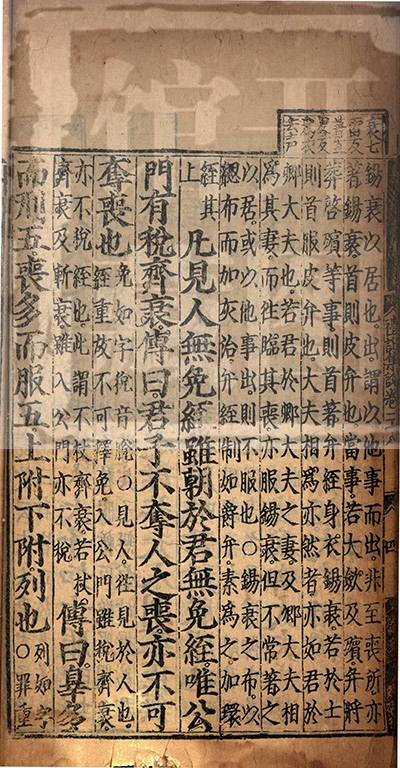 衰七
雷反
著直
錫衰以居也。出。謂以他事而出。非至喪所。亦
著錫衰。首則皮弁也。當事。若大斂及殯。并將
葬啓殯等事。則首著弁絰。身衣錫衰。若於士
則首服皮弁也。大夫相爲亦然者。亦如君於
卿大夫也。若君於卿大夫之妻。及卿大夫相
爲其妻。而往臨其喪。亦服錫衰。但不常著之
以居。或以他事出。則不服也○錫衰之布。以
緦布而加灰治。弁絰制如爵弁。素爲之。加環
絰其上 凡見人無免絰。雖朝於君無免絰。唯公
門有稅齊衰。傳曰。君子不奪人之喪。亦不可
奪喪也。免如字。稅音脫○見人。往見於人也。
絰重。故不可釋免。入公門雖稅齊衰。
亦不稅絰也。此謂不杖齊衰。若杖
齊衰及斬衰。雖入公門亦不稅 傳曰。辠多
而刑五。喪多而服五。上附下附。列也。列如字○罪重